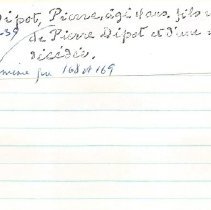 Dipot, Pierre, âgé d'ans, fils
39 de Pierre Dipot et d'une
décédés.
même pu 168 et 169